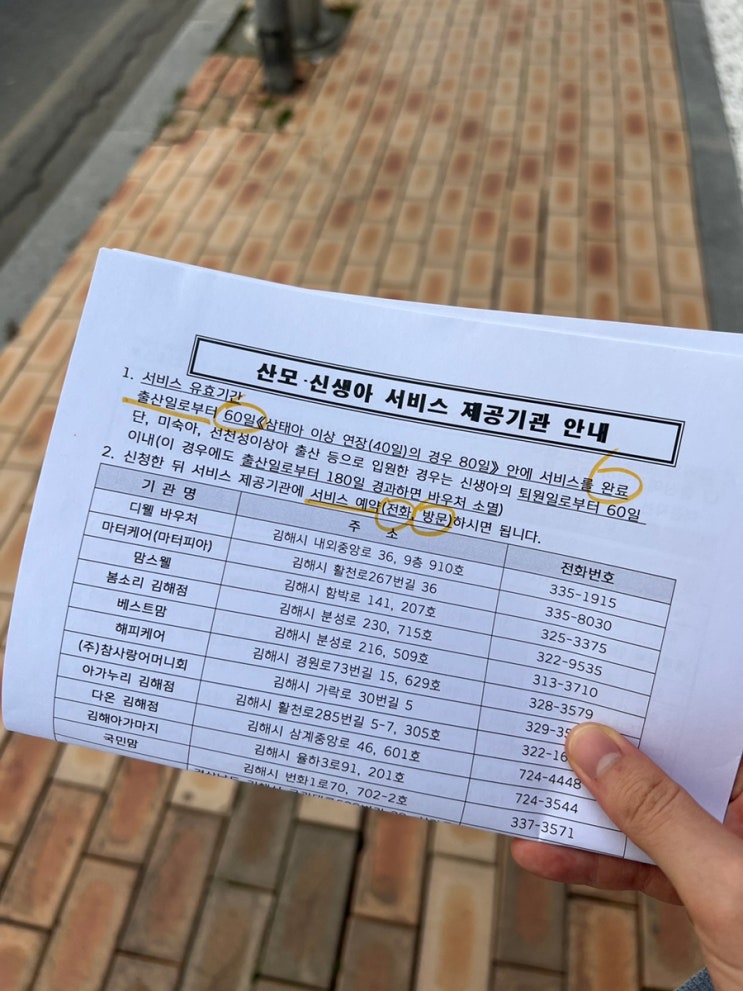 산모·신생아 서비스 제공기관 안내
1. 서비스 유효기간
출산일로부터 60일《삼태아 이상 연장(40일)의 경우 80일》 안에 서비스를 완료
단, 미숙아, 선천성이상아 출산 등으로 입원한 경우는 신생아의 퇴원일로부터 60일
이내(이 경우에도 출산일로부터 180일 경과하면 바우처 소멸)
2. 신청한 뒤 서비스 제공기관에 서비스 예약(전화, 방문)하시면 됩니다.
기 관 명 주 소 전화번호
디웰 바우처 김해시 내외중앙로 36, 9층 910호 335-1915
마터케어(마터피아) 김해시 활천로267번길 36 335-8030
맘스웰 김해시 함박로 141, 207호 325-3375
봄소리 김해점 김해시 분성로 230, 715호 322-9535
베스트맘 김해시 분성로 216, 509호 313-3710
해피케어 김해시 경원로73번길 15, 629호 328-3579
(주)참사랑어머니회 김해시 가락로 30번길 5
아가누리 김해점 김해시 활천로285번길 5-7, 305호
다온 김해점 김해시 삼계중앙로 46, 601호 724-4448
김해아가마지 김해시 율하3로91, 201호 724-3544
국민맘 김해시 번화1로70, 702-2호 337-3571